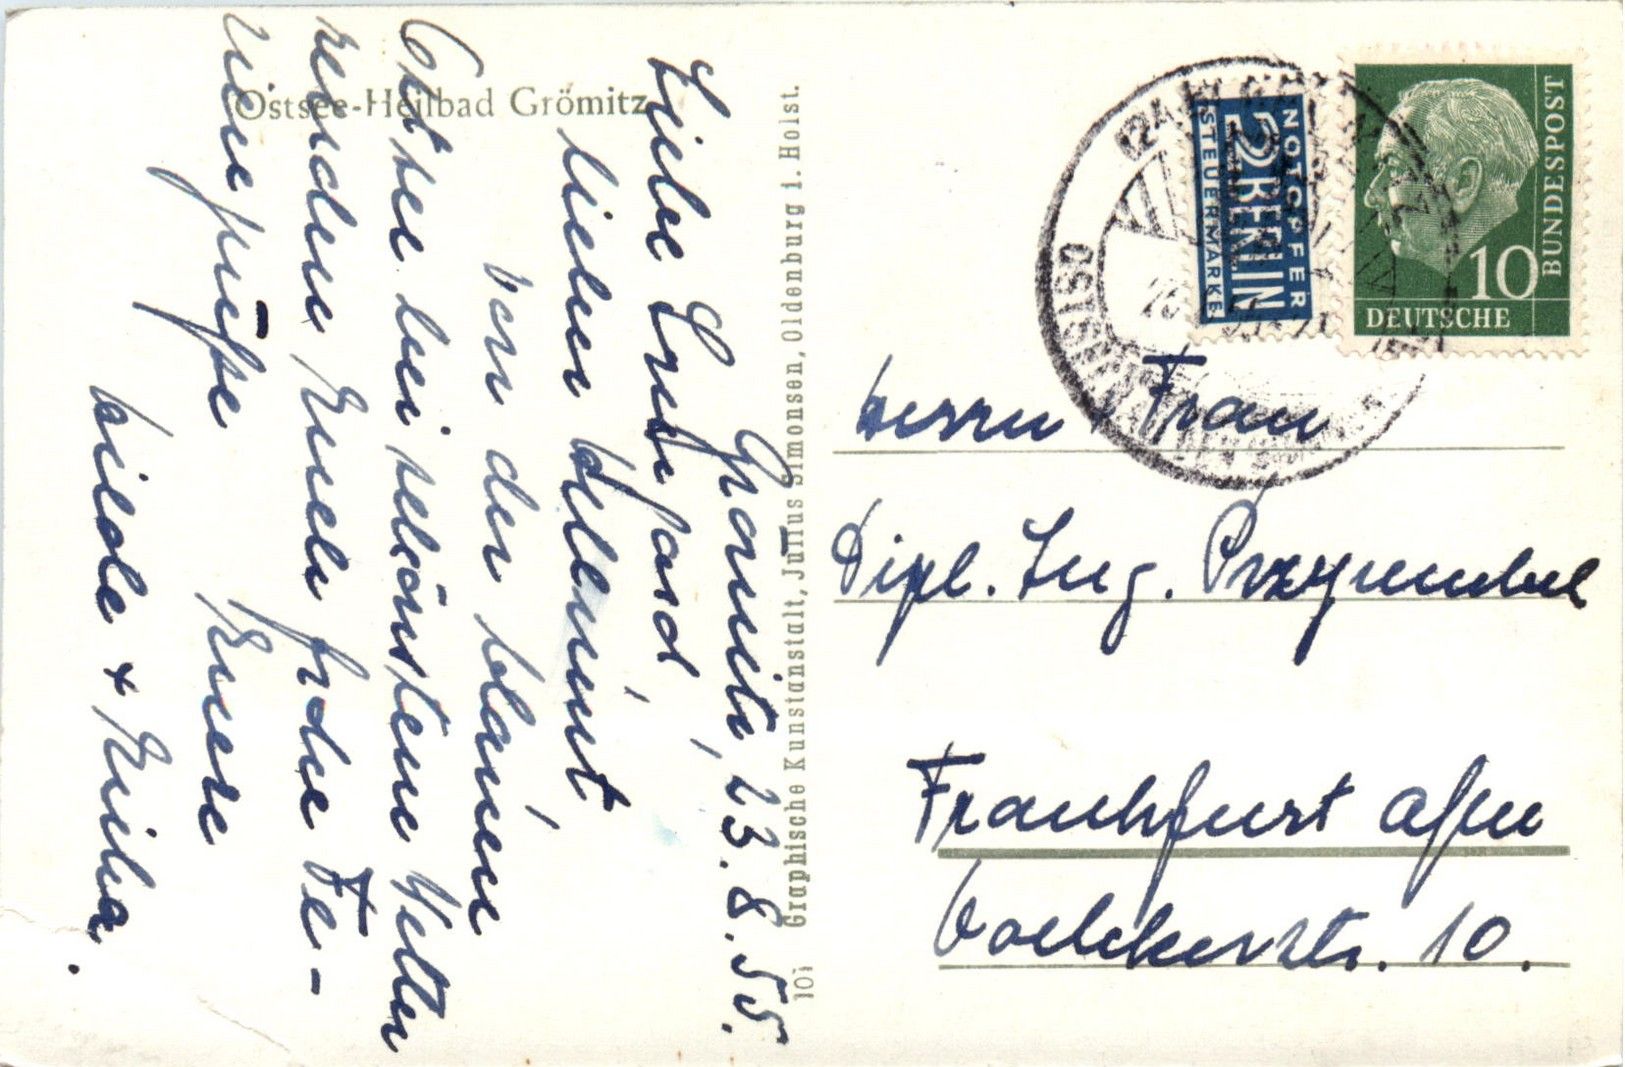 Ostsee-Heilbad Grömitz
Grömitz, 23.8.55.
Liebe Irmgard
lieber Hellmut,
von der blauen
Ostsee bei schönstem Wetter
senden Euch frohe Fe-
riengrüße Eure
Hilde +
101 Graphische Kunstanstalt, Julius Simonsen, Oldenburg i. Holst.
NOTOPFER
2 BERLIN
STEUERMARKE
DEUTSCHE
BUNDESPOST
10
OSTSEE
Herrn, Frau
Dipl. Ing. Przyrembel
Frankfurt a/M
Voelckerstr. 10.